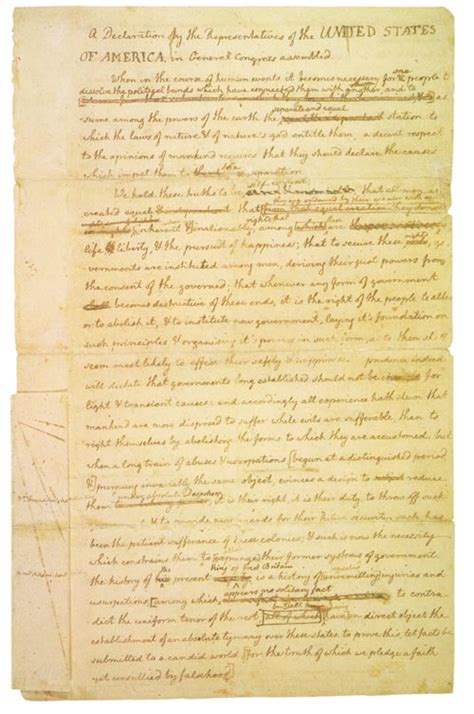 A Declaration by the Representatives of the UNITED STATES
OF AMERICA, in General Congress assembled.
When in the course of human events it becomes necessary for one people to
dissolve the political bands which have connected them with another, and to
assume among the powers of the earth the separate and equal station to
which the laws of nature & of nature's god entitle them, a decent respect
to the opinions of mankind requires that they should declare the causes
which impel them to the separation.
We hold these truths to be self-evident; that all men are
created equal
inherent & inalienable, among which are
life, & liberty, & the pursuit of happiness; that to secure these rights, go-
vernments are instituted among men, deriving their just powers from
the consent of the governed; that whenever any form of government
becomes destructive of these ends, it is the right of the people to alter
or to abolish it, & to institute new government, laying it's foundation on
such principles & organising it's powers in such form, as to them shall
seem most likely to effect their safety & happiness. prudence indeed
will dictate that governments long established should not be changed for
light & transient causes: and accordingly all experience hath shewn that
mankind are more disposed to suffer while evils are sufferable, than to
right themselves by abolishing the forms to which they are accustomed. but
when a long train of abuses & usurpations [begun at a distinguished period
& pursuing invariably the same object, evinces a design to reduce
them under absolute Despotism, it is their right, it is their duty to throw off such
& to provide new guards for their future security. such has
been the patient sufferance of these colonies; & such is now the necessity
which constrains them to expunge their former systems of government.
the history of the present King of Great Britain is a history of unremitting injuries and
usurpations, [among which, appears no solitary fact to contra-
dict the uniform tenor of the rest but all have in direct object the
establishment of an absolute tyranny over these states. to prove this, let facts be
submitted to a candid world [for the truth of which we pledge a faith
yet unsullied by falsehood]